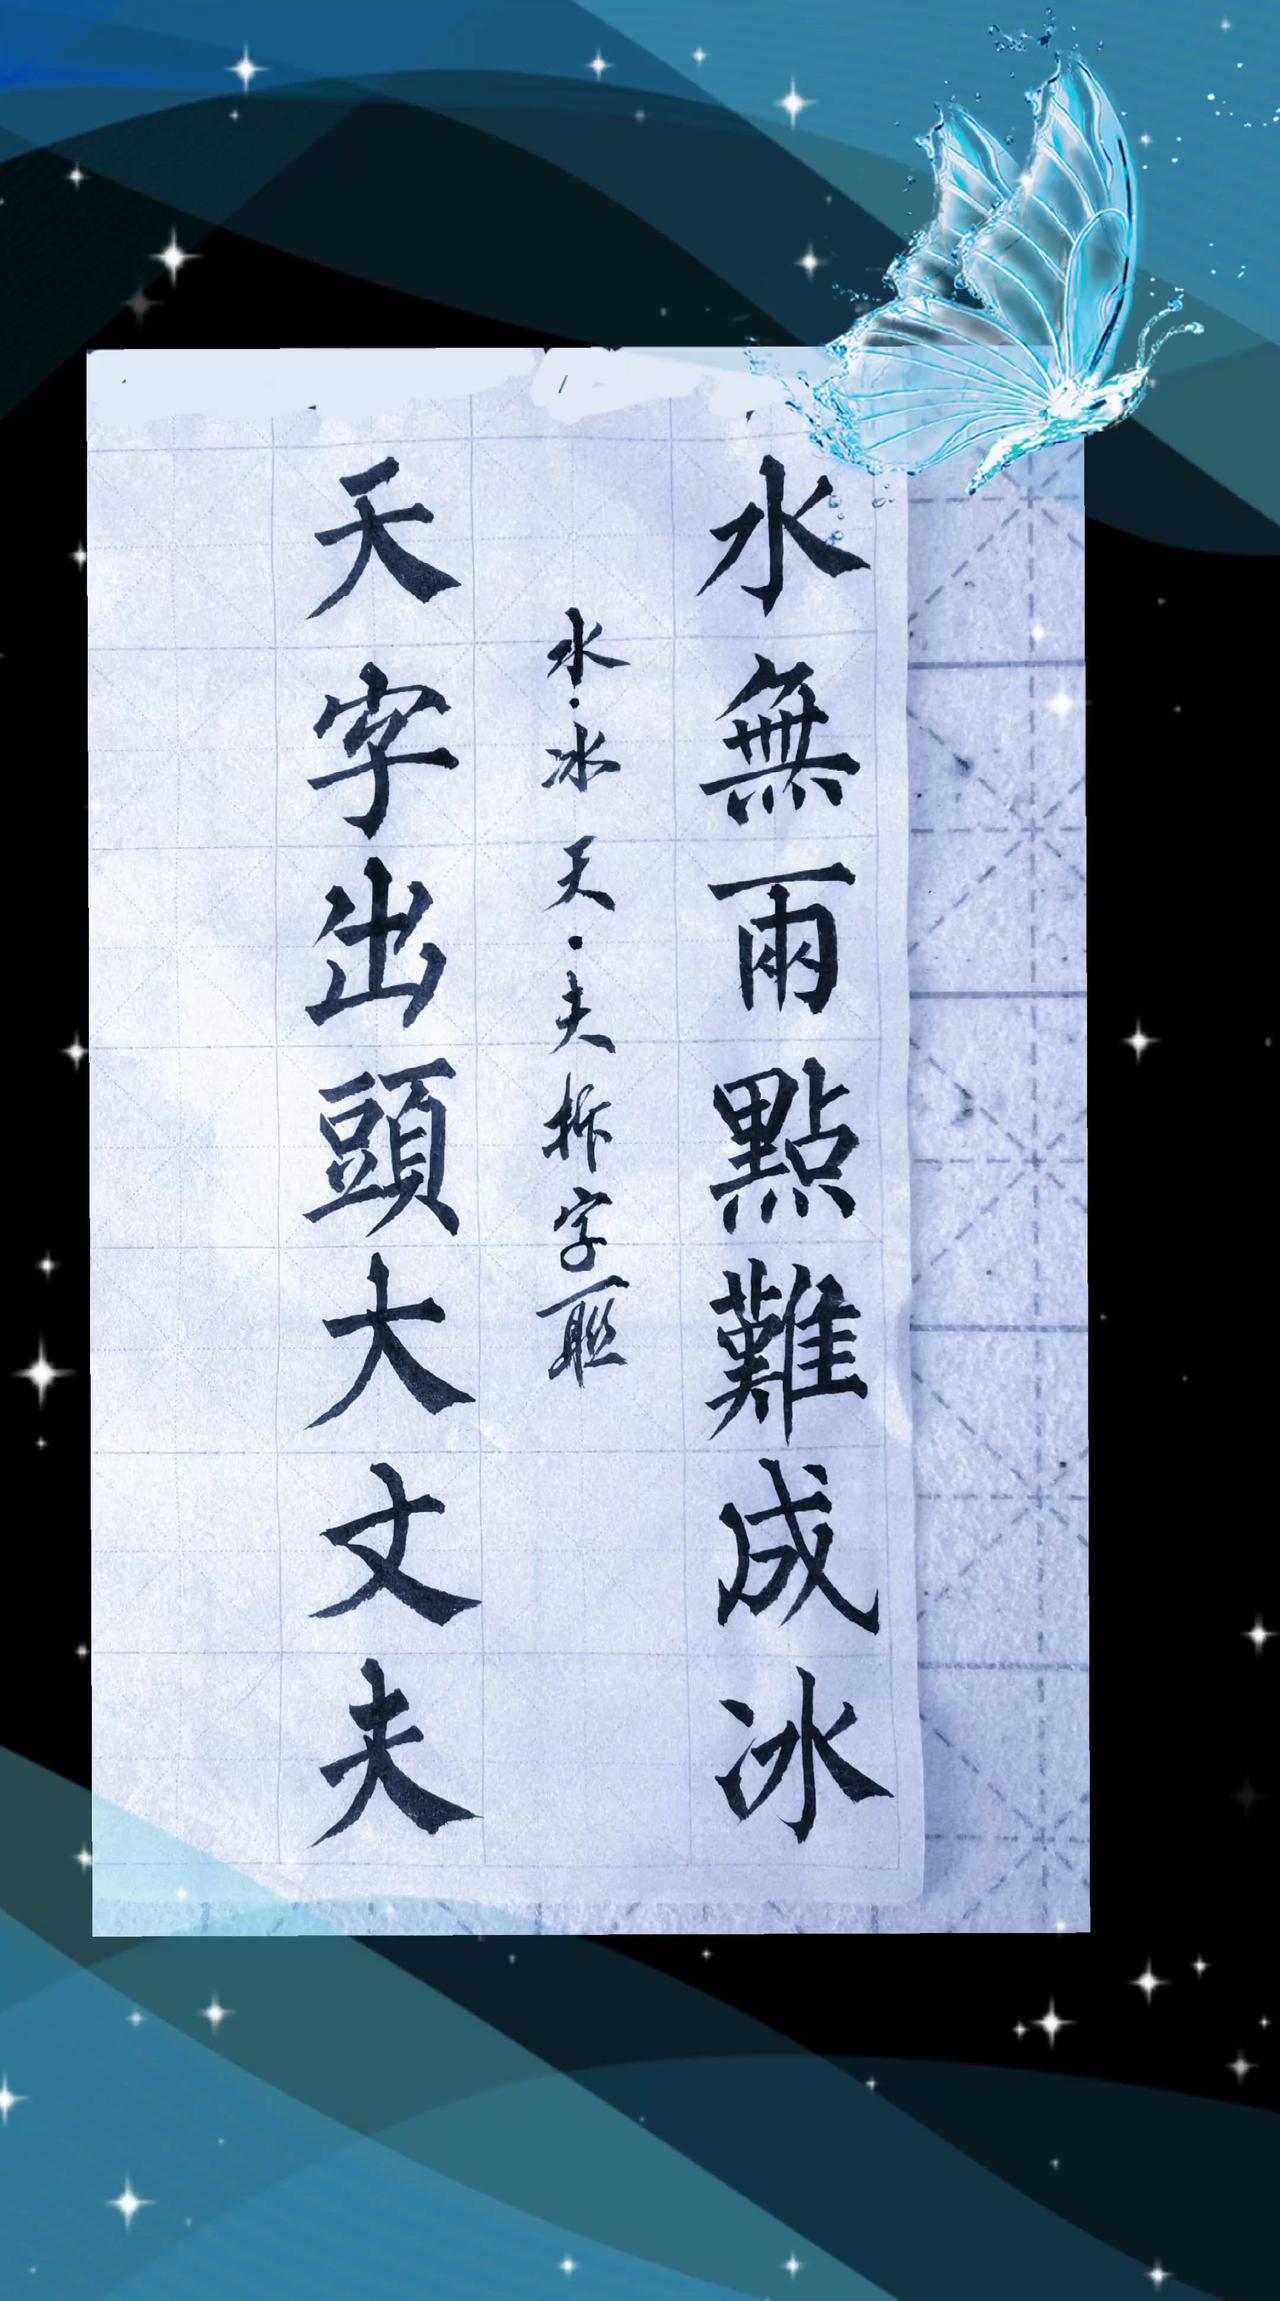 水無兩點難成冰
水·冰 天·夫拆字聯
天字出頭大丈夫